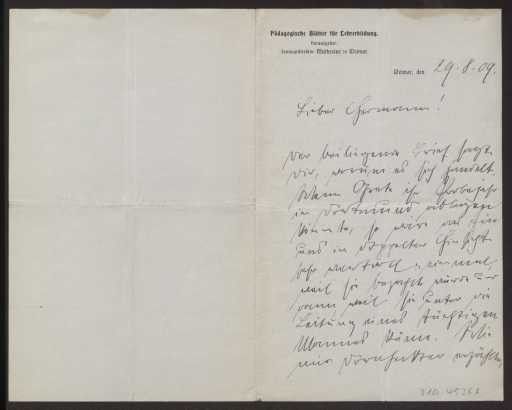 Pädagogische Blätter für Lehrerbildung.
Herausgeber:
Seminardirektor Muthesius in Weimar.
Weimar, den 29.8.09.
Lieber Hermann!
Der beiliegende Brief sagt
Dir, worum es sich handelt.
Wenn Grete ihr Probejahr
in Dortmund ablegen
könnte, so wäre das
und in doppelter Hinsicht
sehr wertvoll, einmal
weil sie bezahlt würde und
dann weil sie unter die
Leitung eines tüchtigen
Mannes käme.
mir erzählte,